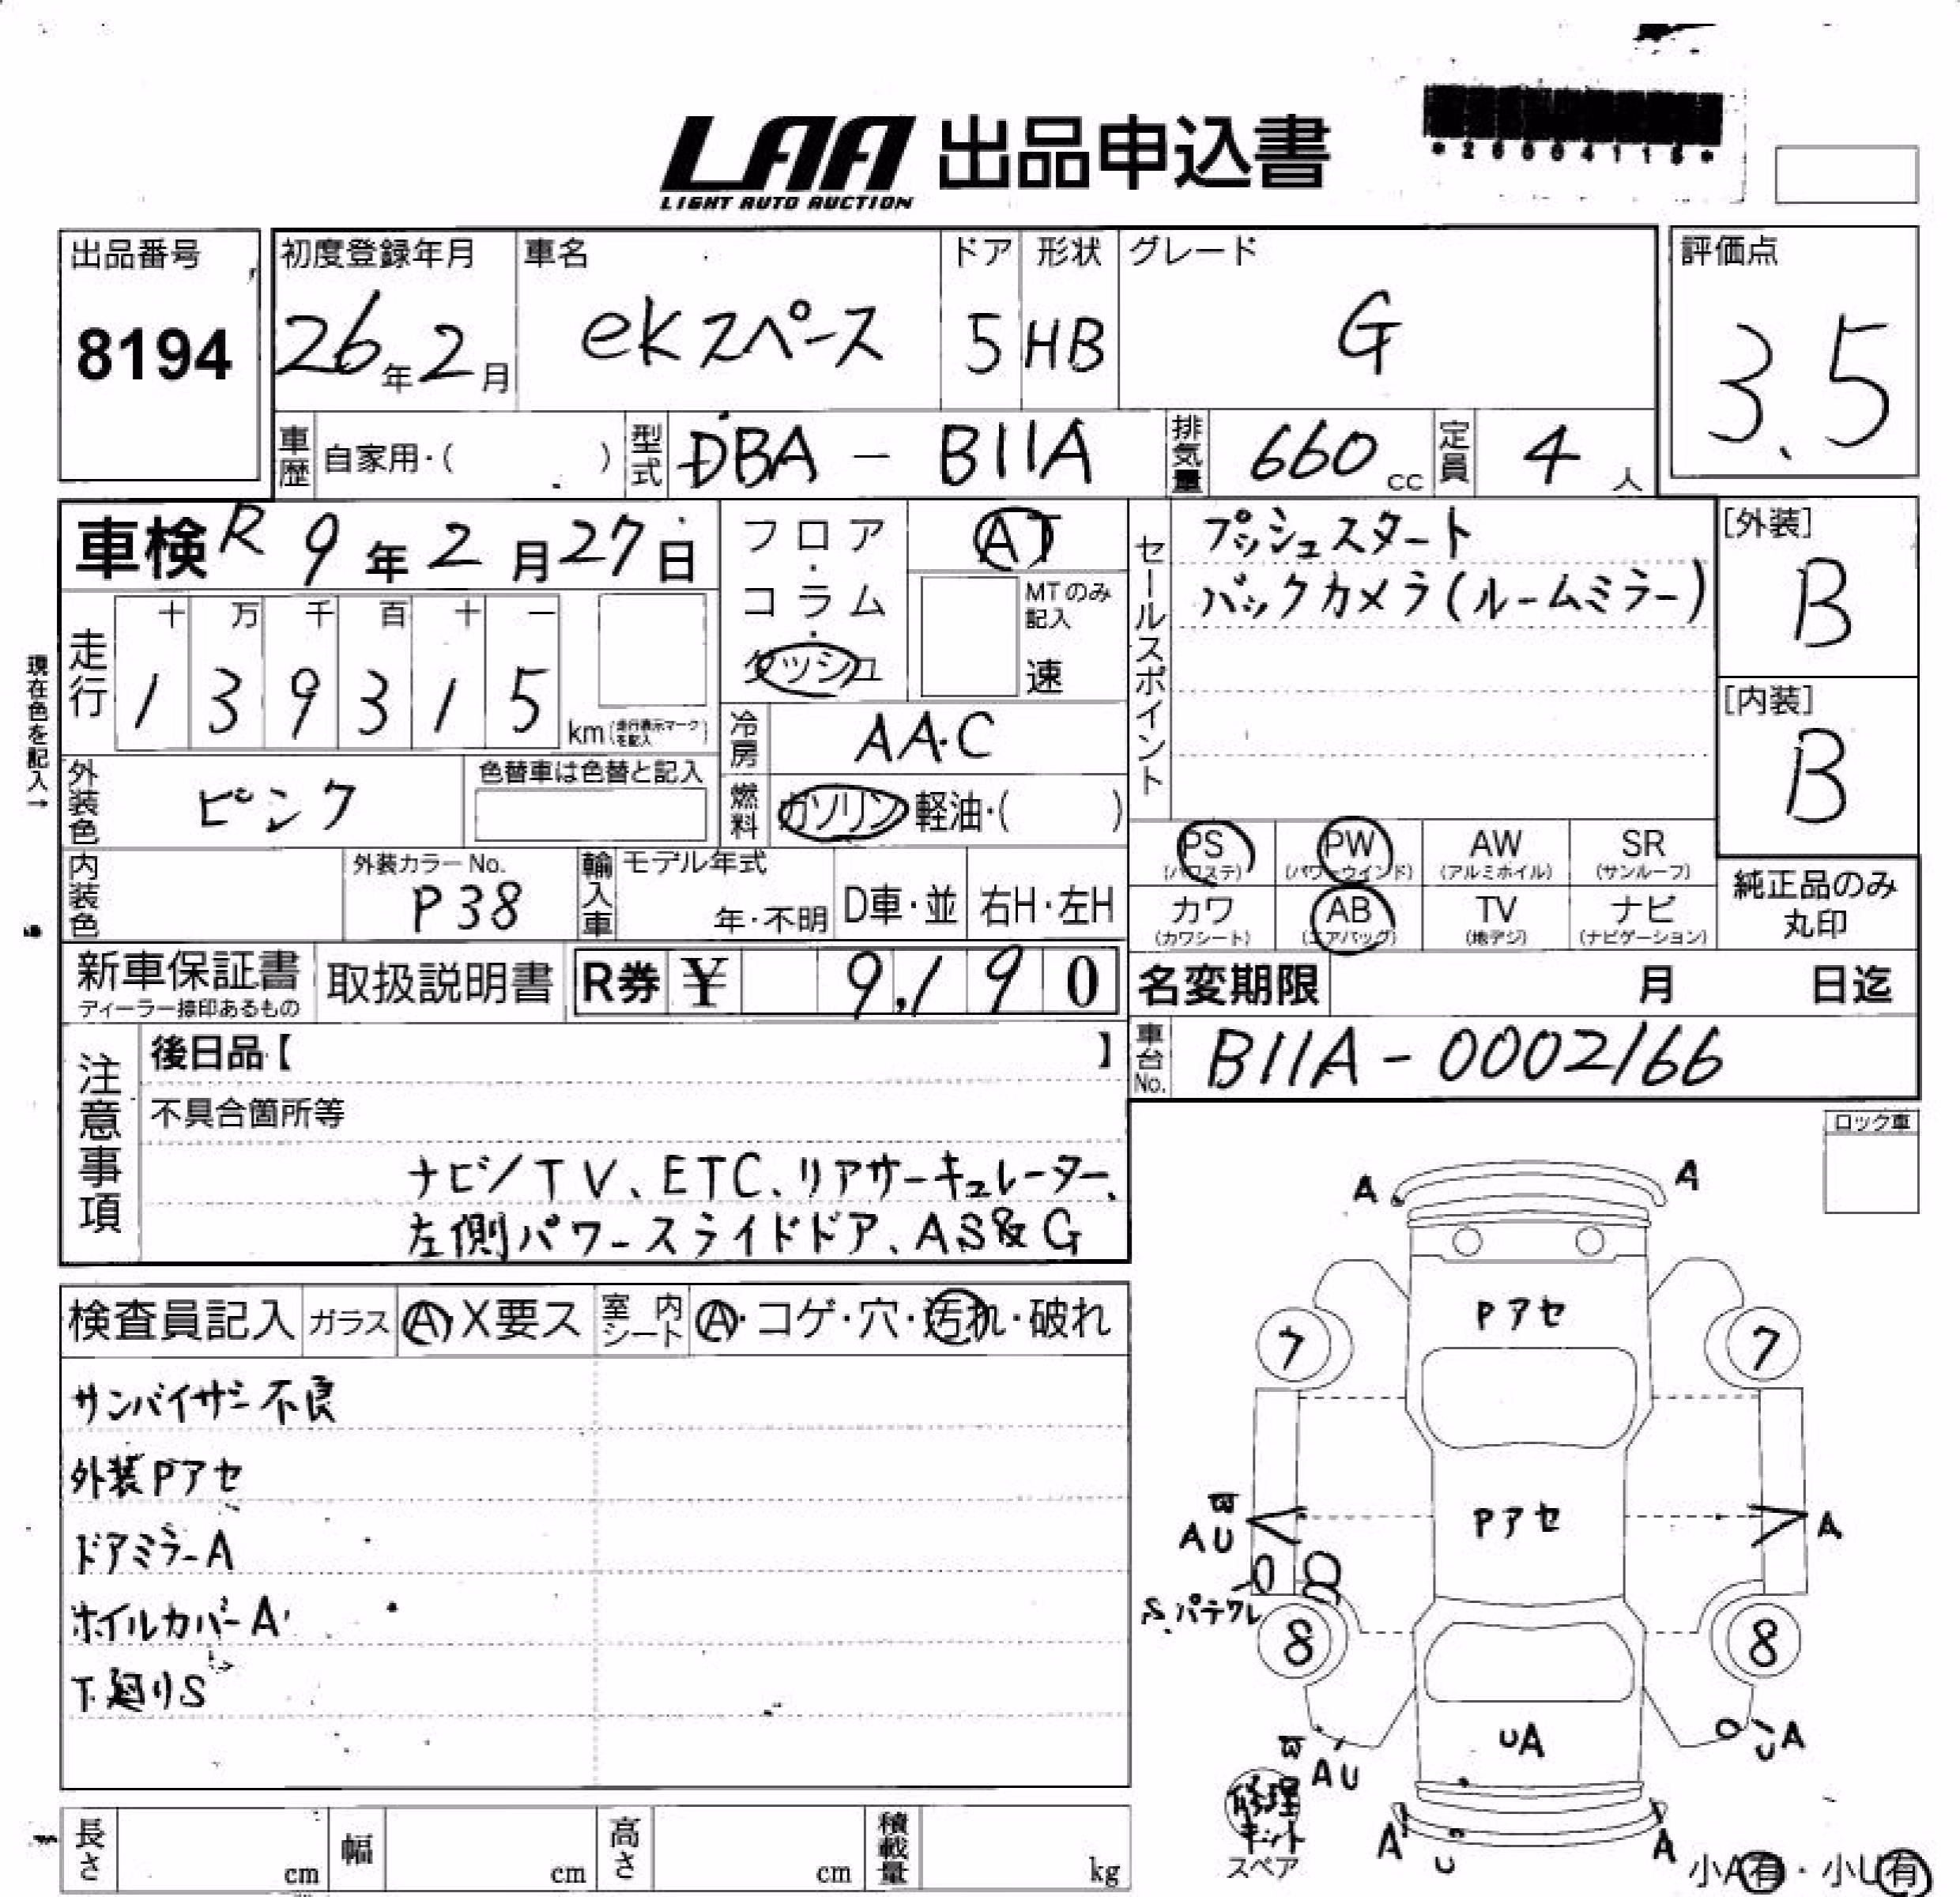 LAA 出品申込書
LIGHT AUTO AUCTION
*26004115*
出品番号
8194
初度登録年月
26年2月
車名
ekスペース
ドア
5
形状
HB
グレード
G
評価点
3.5
車歴 自家用・( )
型式 DBA - B11A
排気量 660 cc
定員 4 人
車検 R 9年2月27日
フロア・コラム・ダッシュ
AT
MTのみ記入
速
セールスポイント
プッシュスタート
バックカメラ(ルームミラー)
[外装]
B
[内装]
B
現在色を記入→
走行
十 万 千 百 十 一
1 3 9 3 1 5
km(走行表示マークを記入)
冷房 AA.C
外装色 ピンク
色替車は色替と記入
燃料 ガソリン・軽油・( )
PS (パワステ)
PW (パワーウインド)
AW (アルミホイル)
SR (サンルーフ)
カワ (カワシート)
AB (エアバッグ)
TV (地デジ)
ナビ (ナビゲーション)
純正品のみ
丸印
内装色
外装カラーNo.
P38
輸入車
モデル年式
年・不明
D車・並
右H・左H
新車保証書
ディーラー捺印あるもの
取扱説明書
R券 ¥ 9,190
名変期限 月 日迄
車台No. B11A-0002166
注意事項
後日品【 】
不具合箇所等
ナビ/TV、ETC、リアサーキュレーター、
左側パワースライドドア、AS&G
ロック車
検査員記入
ガラス A・X要ス
室内シート A・コゲ・穴・汚れ・破れ
サンバイザー不良
外装Pアセ
ドアミラーA
ホイルカバーA
下廻りS
A A
Pアセ
7 7
Pアセ
W
AU
A
S.パテワレ
8 8
UA
W
AU
UA
修理
キット
スペア
A U A
小A有・小U有
長さ cm
幅 cm
高さ cm
積載量 kg